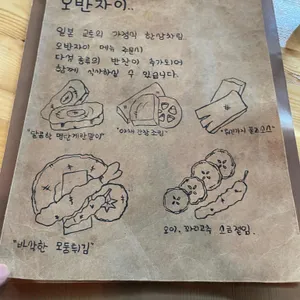 오반자이..
일본 교토의 가정식 한상차림.
오반자이 메뉴 주문시
다섯 종류의 반찬이 추가되어
함께 식사하실 수 있습니다.
"달콤한 명란계란말이"
"야채 간장조림"
"바삭한 모둠튀김"
오이, 꽈리고추 소금절임.